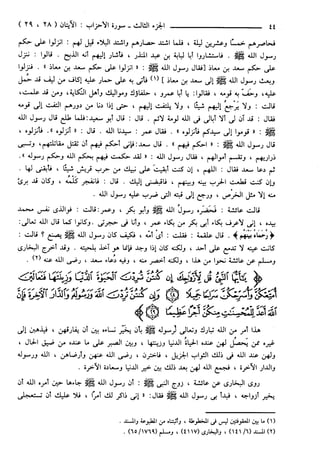 ٤٤ الجزء الثالث - سورة الأحزاب : الآيتان ( ٢٨ ، ٢٩ )
فحاصرهم خمسًا وعشرين ليلة ، فلما اشتد حصارهم واشتد البلاء قيل لهم : انزلوا على حكم
رسول الله ﷺ . فاستشاروا أبا لبابة بن عبد المنذر ، فأشار إليهم أنه الذبح . قالوا : ننزل
على حكم سعد بن معاذ [ فقال رسول الله ﷺ : « انزلوا على حكم سعد بن معاذ » . فنزلوا
وبعث رسول الله ﷺ إلى سعد بن معاذ ] (١) فأتي به على حمار عليه إكاف من ليف قد حمل
عليه ، وحف به قومه ، فقالوا : يا أبا عمرو ، حلفاؤك ومواليك وأهل النكاية ، ومن قد علمت ،
قالت : ولا يرجع إليهم شيئًا ، ولا يلتفت إليهم ، حتى إذا دنا من دورهم التفت إلى قومه
فقال : قد آن لي ألا أبالي في الله لومة لائم . قال : قال أبو سعيد : فلما طلع قال رسول الله
ﷺ : « قوموا إلى سيدكم فأنزلوه » . فقال عمر : سيدنا الله . قال : « أنزلوه » . فأنزلوه ،
قال رسول الله ﷺ : « احكم فيهم » . قال سعد : فإني أحكم فيهم أن تقتل مقاتلتهم ، وتسبى
ذراريهم ، وتقسم أموالهم ، فقال رسول الله : « لقد حكمت فيهم بحكم الله وحكم رسوله » .
ثم دعا سعد فقال : اللهم ، إن كنت أبقيت على نبيك من حرب قريش شيئًا ، فأبقني لها .
وإن كنت قطعت الحرب بينه وبينهم ، فاقبضني إليك . قال : فانفجر كلمه ، وكان قد برئ
منه إلا مثل الخرص ، ورجع إلى قبته التي ضرب عليه رسول الله .
قالت عائشة : فحضره رسول الله ﷺ وأبو بكر ، وعمر : قالت : فوالذي نفس محمد
بيده ، إني لأعرف بكاء أبي بكر من بكاء عمر ، وأنا في حجرتي . وكانوا كما قال الله تعالى :
﴿ رحماء بينهم ﴾ . قال علقمة : فقلت : أي أمه ، فكيف كان رسول الله ﷺ يصنع ؟ قالت :
كانت عينه لا تدمع على أحد ، ولكنه كان إذا وجد فإنما هو آخذ بلحيته . وقد أخرج البخاري
ومسلم عن عائشة نحوا من هذا ، ولكنه أخصر منه ، وفيه دعاء سعد ، رضي الله عنه (٢) .
هذا أمر من الله تبارك وتعالى لرسوله ﷺ بأن يخير نساءه بين أن يفارقهن ، فيذهبن إلى
غيره ممن يحصل لهن عنده الحياة الدنيا وزينتها ، وبين الصبر على ما عنده من ضيق الحال ،
ولهن عند الله في ذلك الثواب الجزيل ، فاخترن ، رضي الله عنهن وأرضاهن ، الله ورسوله
والدار الآخرة ، فجمع الله لهن بعد ذلك بين خير الدنيا وسعادة الآخرة .
روى البخاري عن عائشة ، زوج النبي ﷺ : أن رسول الله ﷺ جاءها حين أمره الله أن
يخير أزواجه ، فبدأ بي رسول الله ﷺ فقال : « إني ذاكر لك أمرًا ، فلا عليك أن تستعجلي
(١) ما بين المعقوفين ليس في المخطوطة ، وأثبتناه من المطبوعة والمسند .
(٢) المسند (٦/ ١٤١) ، والبخاري (٤١١٧) ، ومسلم (١٧٦٩/ ٦٥) .